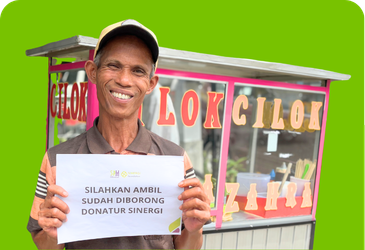 CILOK
LOK
CILOK
SILAHKAN AMBIL
SUDAH DIBORONG
DONATUR SINERGI